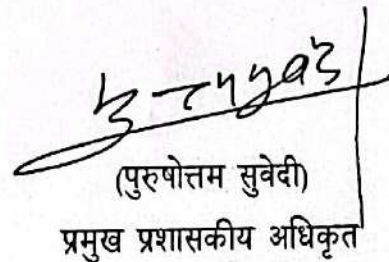 (पुरुषोत्तम सुवेदी)
प्रमुख प्रशासकीय अधिकृत